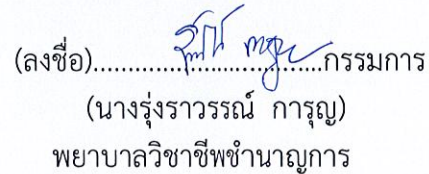 (ลงชื่อ)....................................กรรมการ
(นางรุ่งราวรรณ์ การุญ)
พยาบาลวิชาชีพชำนาญการ